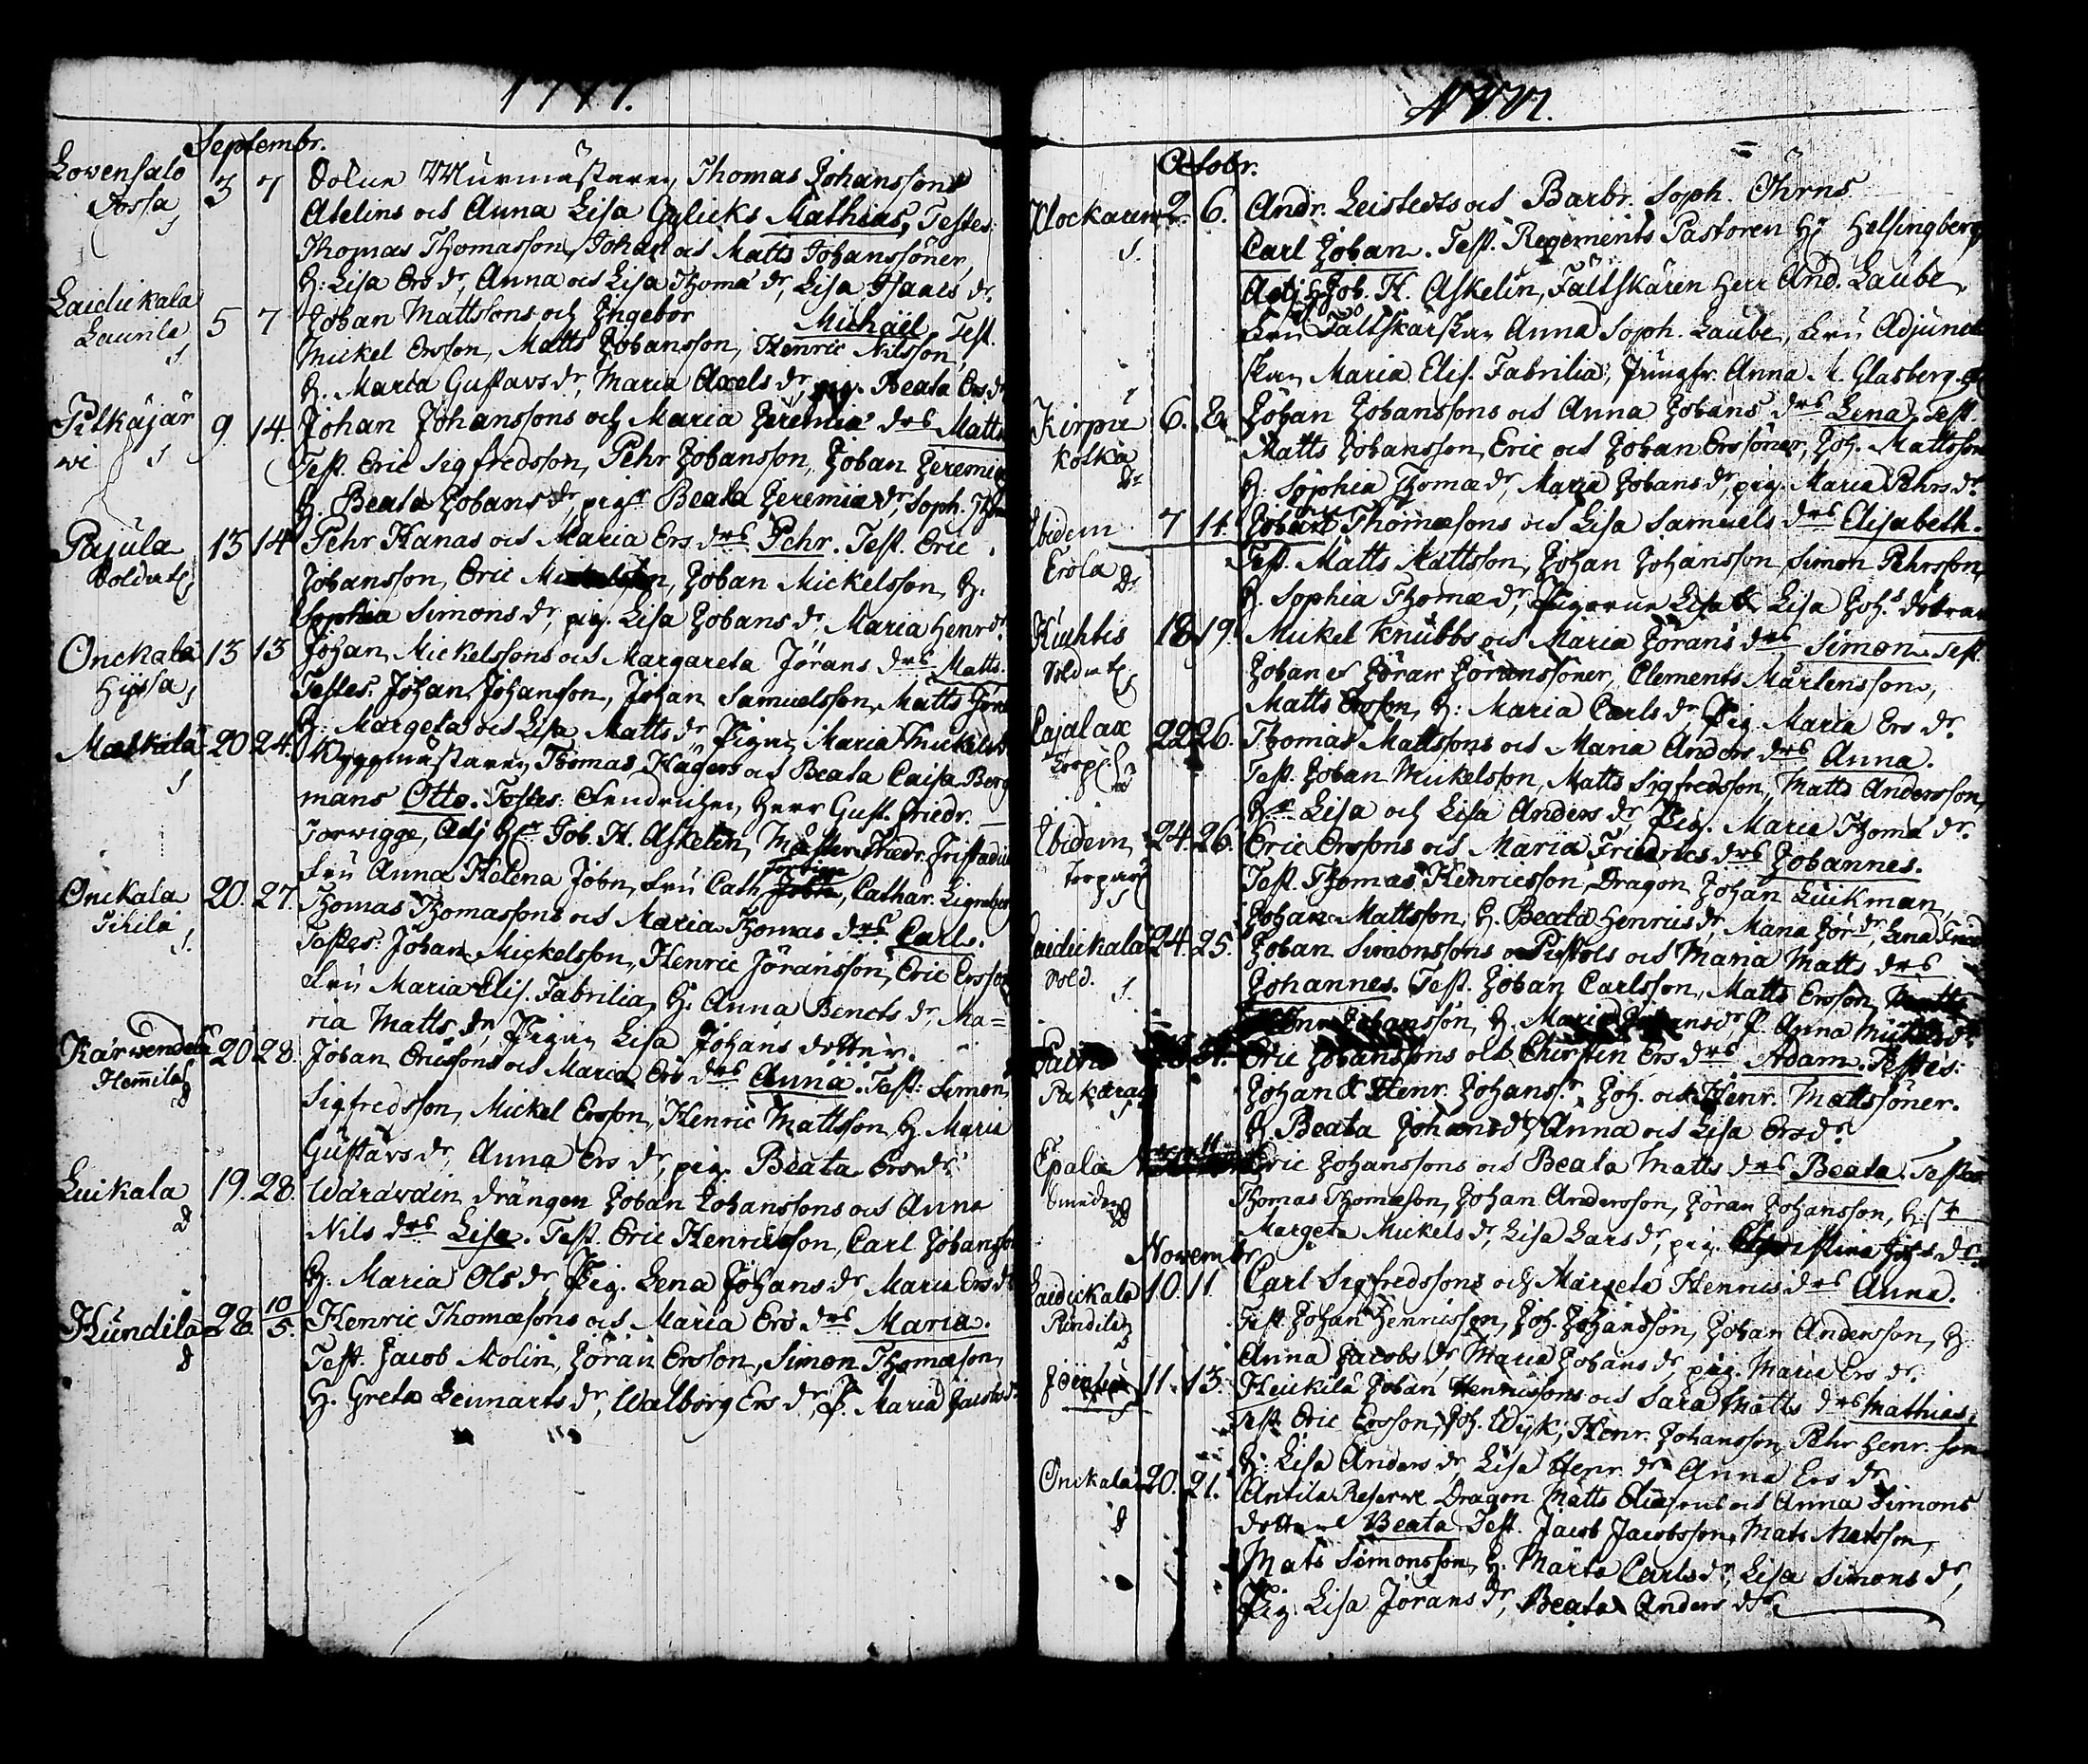 1777.
Septembr.
Lovensalo 3 7 Murmästaren Thomas Johanssons
Atelins och Anna Lisa Gylicks Mathias, Testes:
Thomas Thomasson, Johan och Matts Johanssöner,
H: Lisa Ers dr, Anna och Lisa Thomæ dr, Lisa Isaacs dr.
Laidickala 5 7 Johan Mattssons och Ingebor Michäel, Test.
Launla
Mickel Ersson, Matts Johansson, Henric Nilsson,
H. Maria Gustavs dr, Maria Axels dr, pig. Beata Ers dr
Pitkäjär 9. 14. Johan Johanssons och Maria Jeremiæ drs Matts
wi S Test. Eric Sigfredsson, Pehr Johansson, Johan Jeremiæ
H. Beata Johans dr, pigr Beata Jeremiæ dr, Soph.
Pajula 13 14 Pehr Hanas och Maria Ers drs Pehr. Test. Eric
Johansson, Eric Johan Mickelsson, H.
Sophia Simons dr, pig. Lisa Johans dr, Maria Henr dr
Onckala 13 13 Johan Mickelssons och Margareta Jörans drs Matts.
Hyssa S Testes: Johan Johansson, Johan Samuelsson, Matts
H: Margeta och Lisa Matts dr Pigan Maria Mickels
Matkula 20 24. Byggmästaren Thomas Hägers och Beata Caisa Berg
S mans Otto. Testes: Fendrichen Herr Gust. Friedr.
Torwigge, Adj Hr Joh. H. Askelin, Friedr.
Fru Anna Helena John, Fru Cath. Torwigge, Cathar.
Onckala 20. 27. Thomas Thomassons och Maria Thomas drs Carl.
Tikila S. Testes: Johan Mickelsson, Henric Jöransson, Eric Ersson
Fru Maria Elis. Fabrilia, H. Anna Bencts dr, Ma=
ria Matts dr, Pigan Lisa Johans dotter.
Karwendela 20 28. Johan Ericssons och Maria Ers drs Anna. Test: Simon
Hemila Sigfredsson, Mickel Ersson, Henric Mattsson, H. Maria
Gustavs dr, Anna Ers dr, pig. Beata Ers dr.
Luikala 19. 28. Warawain drängen Johan Johanssons och Anna
Nils drs Lisa. Test. Eric Henricsson, Carl Johansson
H: Maria Ols dr, Pig. Lena Johans dr Maria Ers dr
Hundila 28. 10/5. Henric Thomæsons och Maria Ers drs Maria.
Test. Jacob Molin, Jöran Ersson, Simon Thomæson,
H. Greta Lennarts dr, Walborg Ers dr, P. Maria Jacobs dr
1777.
Octobr.
Klockaren 2. 6. Andr. Leistedts och Barbr. Soph. Öhrns
S. Carl Johan. Test. Regements Pastoren Hr Helsingberg
Adj. Hr Joh. H. Askelin, Fältskären Herr And. Laube,
Fru Fältskärskan Anna Soph. Laube, Fru Adjunct
skan Maria Elis. Fabrilia, Jungfr. Anna M. Glasberg.
Kirpu 6. 8. Johan Johanssons och Anna Johans drs Lena, Test.
kolkia Matts Johansson, Eric och Johan Erssöner, Joh. Mattsson
H. Sophia Thomæ dr, Maria Johans dr, pig. Maria Pehrs dr.
Ibidem 7 14. Johan Thomæsons och Lisa Samuels drs Elisabeth.
Erola Test. Matts Mattsson, Johan Johansson Simon Pehrsson,
H. Sophia Thomæ dr, Pigorne Lisa & Lisa Johs dotrar
Kuhtis 18 19. Mickel Knubbs och Maria Jörans drs Simon. Test.
Johan et Jöran Jöranssöner, Clements Mårtensson,
Matts Ersson, H: Maria Carls dr Pig. Maria Ers dr.
Cajalax 22 26. Thomas Mattssons och Maria Anders drs Anna.
Torp. Test. Johan Mickelsson, Matts Sigfredsson, Matts Andersson,
Hr Lisa och Lisa Anders dr, Pig. Maria Thomæ dr.
Ibidem 24. 26. Eric Erssons och Maria Friedrics drs Johannes.
Torpare Test. Thomas Henricsson, Dragon Johan Luikman,
S Johan Mattsson, H. Beata Henrics dr, Maria Jör dr, Lena
Laidickala 24. 25. Johan Simonssons Pistols och Maria Matts drs
Sold. S. Johannes. Test. Johan Carlsson, Matts Ersson,
Johansson, H. Maria Johans dr P. Anna Mickels dr.
Eric Johanssons och Christin Ers drs Adam. Testes:
Johan & Henr. Johanss. Joh. och Henr. Mattssöner.
H Beata Johans dr Anna och Lisa Ers dr
Epala Eric Johanssons och Beata Matts drs Beata. Testes
Thomas Thomæson, Johan Andersson, Jöran Johansson, H:
Margeta Mickels dr, Lisa Lars dr, pig. Christina Johs dr.
Novembr
Laidickala 10. 11. Carl Sigfredssons och Margeta Henrics drs Anna.
Pundila Test. Johan Henricsson, Joh. Johansson, Johan Andersson, H
Anna Jacobs dr, Maria Johans dr, pig. Maria Ers dr.
11. 13. Heickilä Johan Henricssons och Sara Matts drs Mathias,
S Test. Eric Ersson, Joh. Wijk, Henr. Johansson, Pehr Henr. son
H: Lisa Anders dr Lisa Henr. dr Anna Ers dr
Onckala 20. 21. Antila Reserve Dragon Matts och Anna Simons
dotters Beata Test. Jacob Jacobsson, Mats Matsson,
Mats Simonsson, H. Märta Carls dr, Lisa Simons dr,
Pig. Lisa Jörans dr, Beata Anders dr.